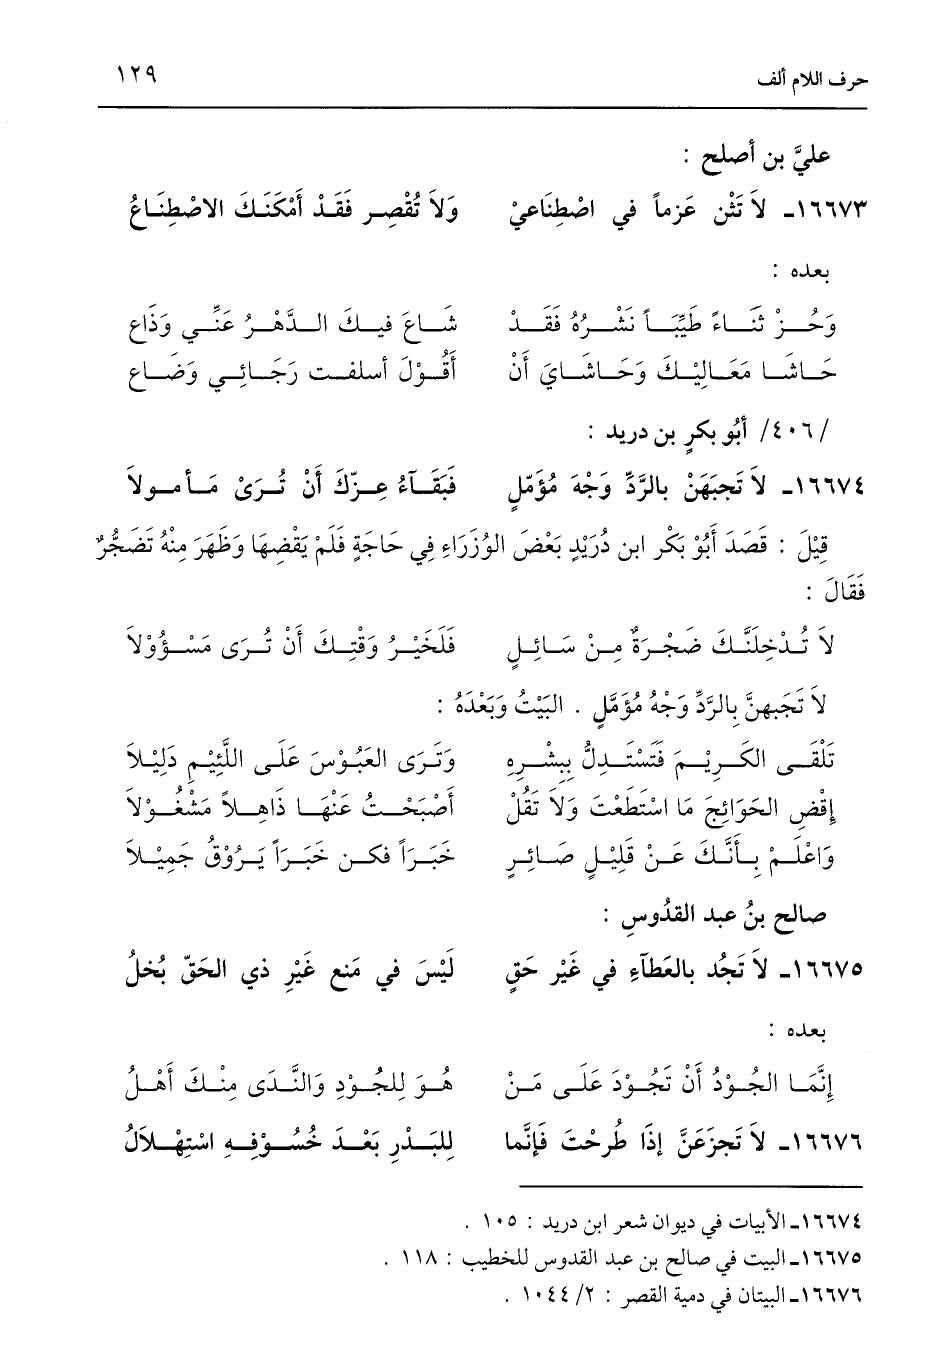 حرف اللام ألف ١٢٩
عليَّ بن أصلح :
١٦٦٧٣ـ لاَ تَثْنِ عَزماً في اصْطِنَاعيْ وَلاَ تُقْصِر فَقَدْ أَمْكَنَكَ الاصْطِنَاعُ
بعده :
وَحُزْ ثَنَاءً طَيِّبَاً نَشْرُهُ فَقَدْ شَاعَ فيكَ الدَّهْرُ عَنِّي وَذَاع
حَاشَا مَعَالِيْكَ وَحَاشَايَ أَنْ أَقُوْلَ أسلفت رَجَائِي وَضَاع
/٤٠٦/ أبُو بكرٍ بن دريد :
١٦٦٧٤ـ لاَ تَجبَهَنْ بالرَّدِّ وَجْهَ مُؤَمّلٍ فَبَقَآءُ عِزّكَ أَنْ تُرَىْ مَأمولاَ
قِيْلَ : قَصَدَ أَبُوْ بَكْر ابن دُرَيْدٍ بَعْضَ الوُزَرَاءِ فِي حَاجَةٍ فَلَمْ يَقْضِهَا وَظَهَرَ مِنْهُ تَضَجُّرٌ
فَقَالَ :
لاَ تُدْخِلَنَّكَ ضَجْرَةٌ مِنْ سَائِلٍ فَلَخَيْرُ وَقْتِكَ أَنْ تُرَى مَسْؤُوْلاَ
لاَ تَجَبهنَّ بِالرَّدِّ وَجْهُ مُؤَمَّلٍ . البَيْتُ وَبَعْدَهُ :
تَلْقَى الكَرِيْمَ فَتَسْتَدِلُّ بِبِشْرِهِ وَتَرَى العَبُوْسَ عَلَى اللَّئِيْمِ دَلِيْلاَ
إِقْضِ الحَوَائِجَ مَا اسْتَطَعْتَ وَلاَ تَقُلْ أَصْبَحْتُ عَنْهَا ذَاهِلاً مَشْغُوْلاَ
وَاعْلَمْ بِأَنَّكَ عَنْ قَلِيْلٍ صَائِرٍ خَبَرَاً فكن خَبَرَاً يَرُوْقُ جَمِيْلاَ
صالح بنُ عبد القدُوسِ :
١٦٦٧٥ـ لاَ تَجُد بالعَطآءِ في غَيْر حَقٍ لَيْسَ في مَنع غَيْرِ ذي الحَقّ بُخلُ
بعده :
إِنَّمَا الجُوْدُ أَنْ تَجُوْدَ عَلَى مَنْ هُوَ لِلجُودِ وَالنَّدَى مِنْكَ أَهْلُ
١٦٦٧٦ـ لاَ تَجزَعَنَّ إذَا طُرحْتَ فَإنَّما لِلبَدْرِ بَعْدَ خُسُوْفِهِ اسْتِهْلاَلُ
١٦٦٧٤ـ الأبيات في ديوان شعر ابن دريد : ١٠٥ .
١٦٦٧٥ـ البيت في صالح بن عبد القدوس للخطيب : ١١٨ .
١٦٦٧٦ـ البيتان في دمية القصر : ٢/ ١٠٤٤ .